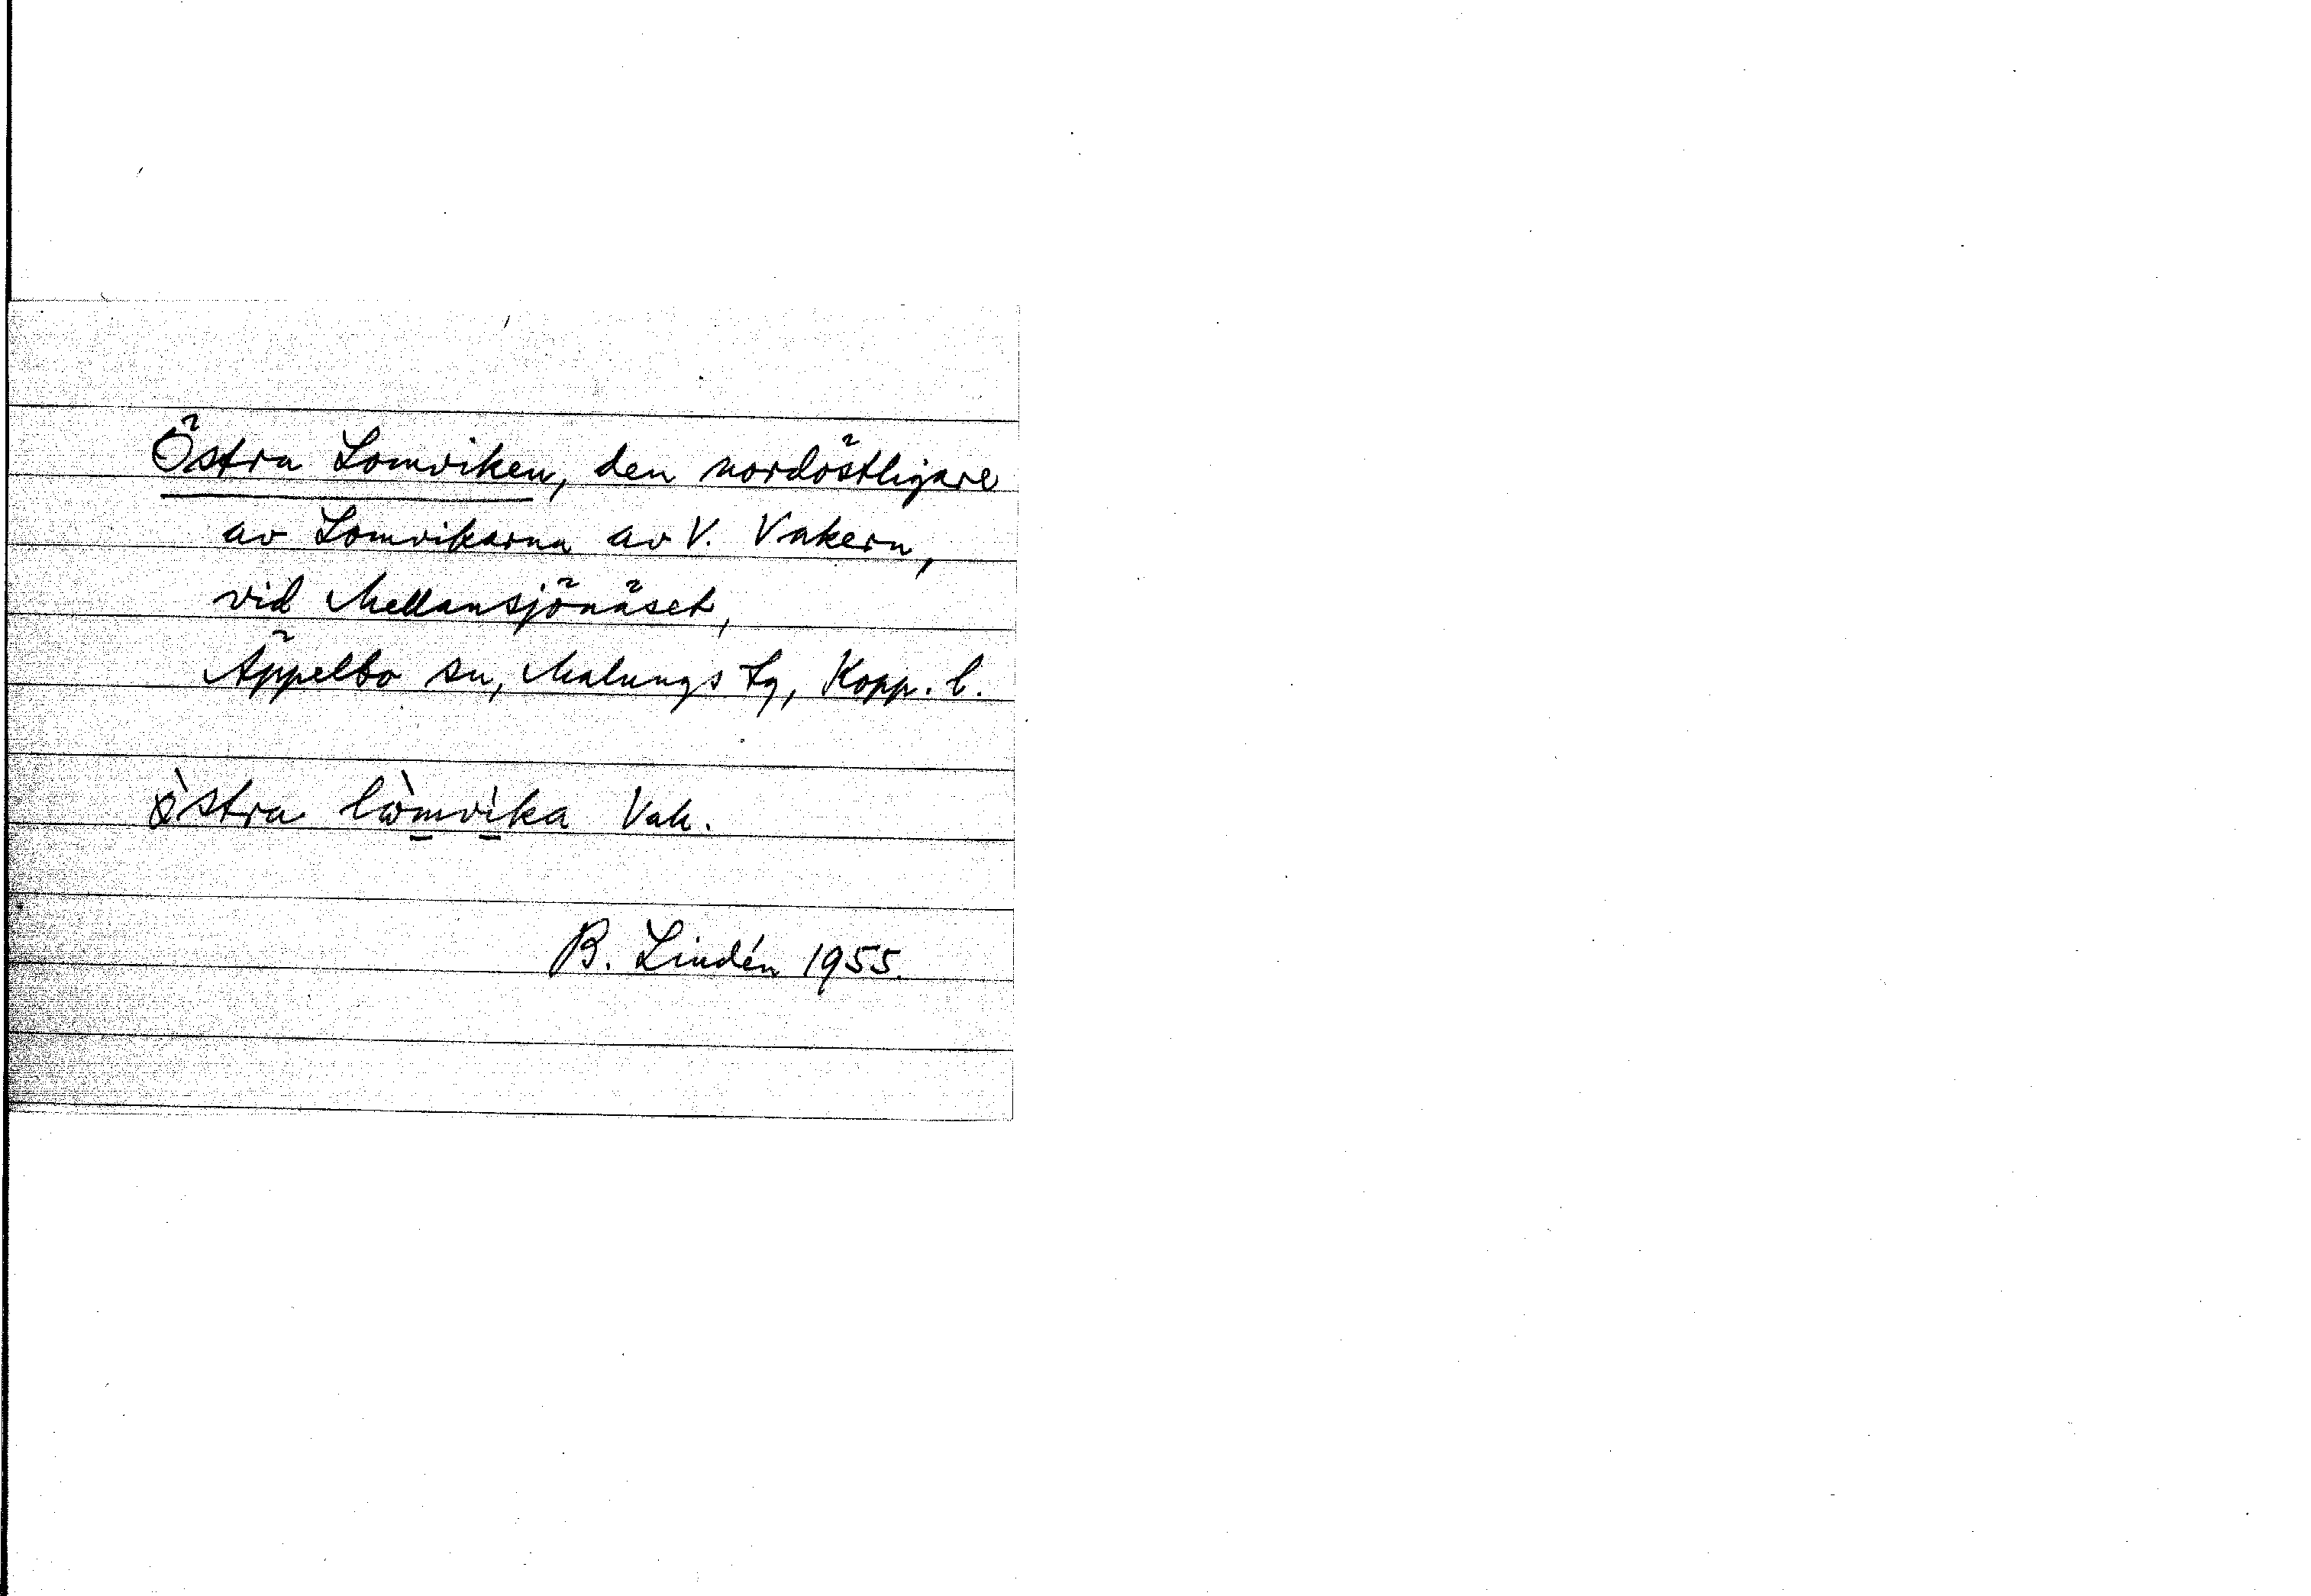 Östra Lomviken, den nordöstligare
av Lomvikarna av V. Vakern,
vid Mellansjönäset,
Äppelbo sn, Malungs tg, Kopp. l.
östra lòmvìka Vak.
B. Lindén 1955.